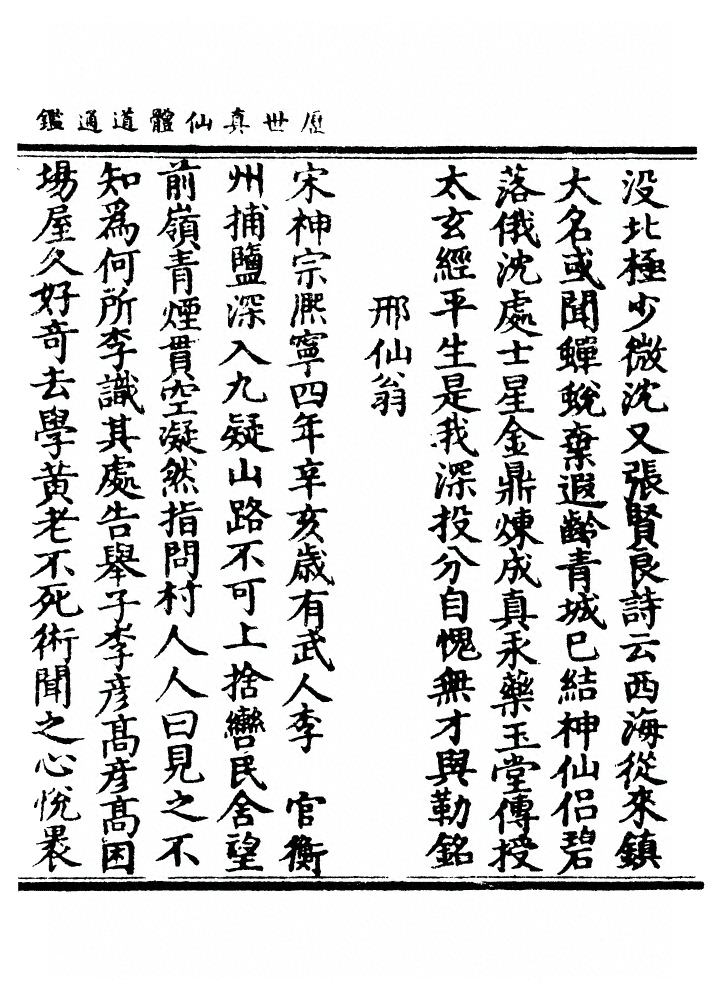 歷世真仙體道通鑑
没北極少微沈又張賢良詩云西海從來鎮
大名或聞蟬蛻棄遐齡青城已結神仙侣碧
落俄沈處士星金鼎煉成真汞藥玉堂傳授
太玄經平生是我深投分自愧無才與勒銘
邢仙翁
宋神宗熈寧四年辛亥歳有武人李 官衡
州捕鹽深入九疑山路不可上捨轡民舍望
前嶺青煙貫空凝然指問村人人曰見之不
知爲何所李識其處告舉子李彦髙彦髙困
場屋久好奇去學黃老不死術聞之心悅褁